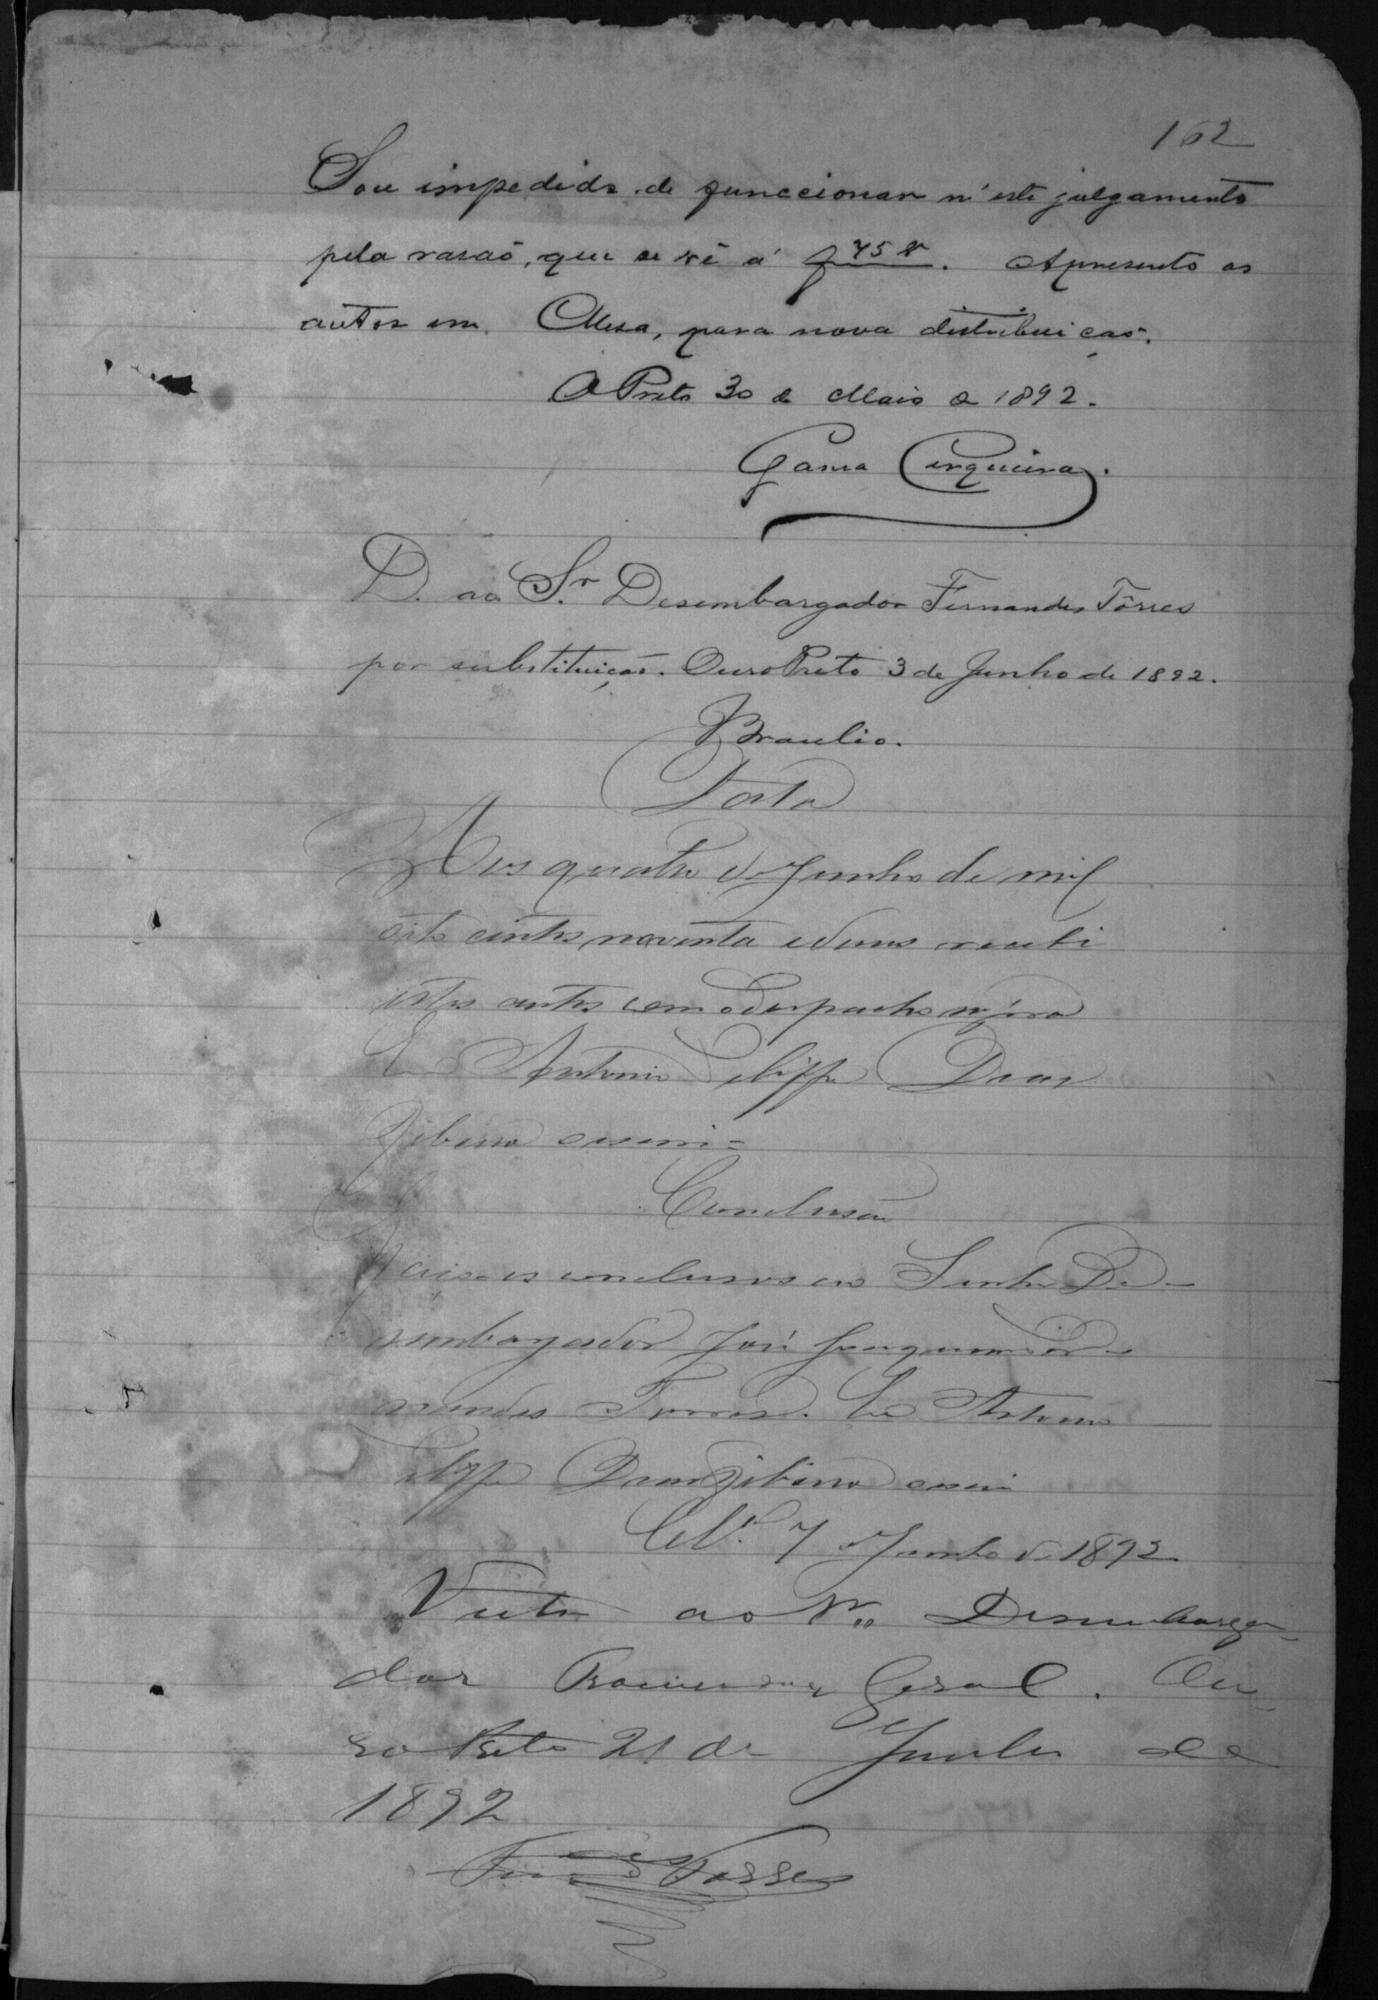 162
Sou impedido de funccionar n'este julgamento
pela rasaõ, que se vê á f 75 v. Apresento os
autos em Mesa, para nova distribuiçaõ.
O Preto 30 de Maio de 1892.
Gama Cerqueira.
D. ao Sr. Desembargador Fernandes Tôrres
por substituiçaõ. Ouro Preto 3 de Junho de 1892.
Braulio.
Data
Aos quatro de Junho de mil
oito centos noventa e dous recebi
estes autos com o despacho supra
Eu Antonio Felippe
escrevi =
Conclusaõ
Faço-os conclusos ao Senhor De-
sembargador José Joaquim Fer-
nandes Torres. Eu Antonio
Felippe escrevi
Cls. 7 de Junho de 1892
Vista ao Sr. Desembarga-
dor Procurador Geral. Ou-
ro Preto 21 de Junho de
1892
Fernandes Torres